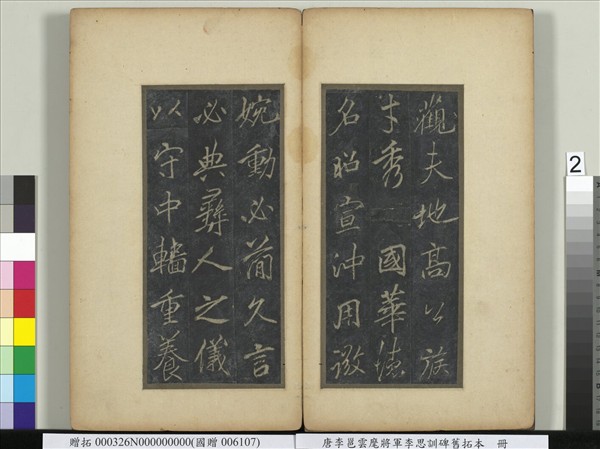 觀夫地高公族
才秀國華德
名昭宣沖用微
婉動必簡久言
必典彝人之儀
以守中轄重養
2
贈拓 000326N000000000(國贈 006107)
唐李邕雲麾將軍李思訓碑舊拓本 冊